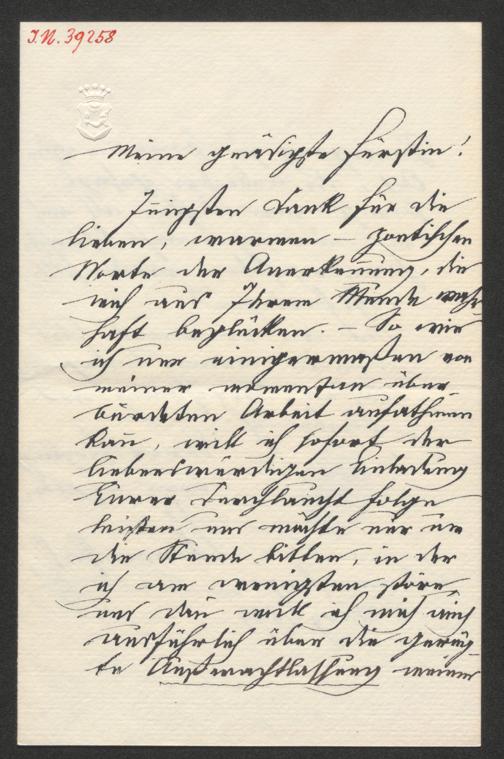 I.N. 39258
Meine gnädigste Fürstin!
Innigsten Dank für die
lieben, warmen – poetischen
Worte der Anerkennung, die
mich aus Ihrem Munde wahr-
haft beglücken. – So wie
ich nur einigermaßen von
meiner momentan über
bürdeten Arbeit aufathmen
kan, will ich sofort der
liebenswürdigen Einladung
Eurer Durchlaucht Folge
leisten und möchte nur um
die Stunde bitten, in der
ich am wenigsten störe,
und dan will ich mich auch
ausführlich über die gerüg-
te Außerachtlassung meiner